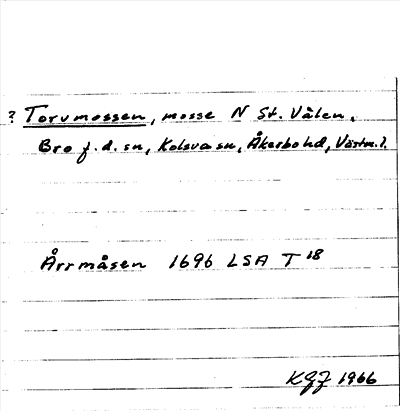 ? Torvmossen, mosse N St. Vålen,
Bro f.d. sn, Kolsva sn, Åkerbo hd, Västm. l.
Årrmåsen 1696 LSA T 18
KGJ 1966